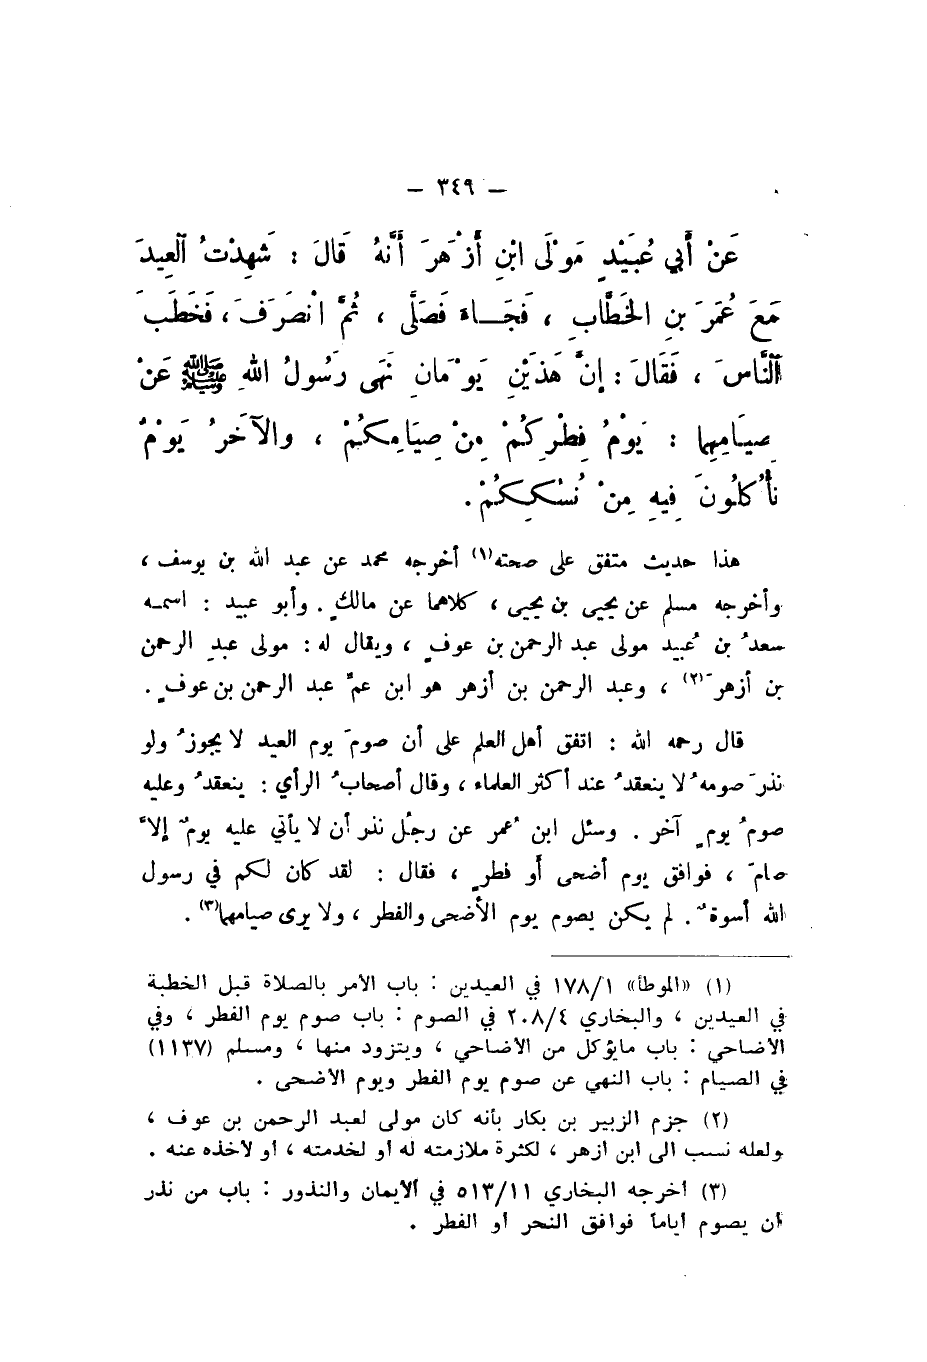 – ٣٤٩ –
عَنْ أَبي عُبَيْدٍ مَوْلَى ابْنِ أَزْهَرَ أَنَّهُ قَالَ : شَهِدْتُ الْعِيدَ
مَعَ عُمَرَ بنِ الخَطَّابِ ، فَجَـاءَ فَصَلَّى ، ثُمَّ انْصَرَفَ ، فَخَطَبَ
النَّاسَ ، فَقَالَ : إنَّ هَذَيْنِ يَوْمَانِ نَهَى رَسُولُ اللهِ ﷺ عَنْ
صِيَامِهِما : يَوْمُ فِطْرِكُمْ مِنْ صِيَامِكُمْ ، والآخَرُ يَوْمٌ
تَأْكُلُونَ فِيهِ مِنْ نُسُكِكُمْ .
هذا حديث متفق على صحته(١) أخرجه محمد عن عبد الله بن يوسف ،
وأخرجه مسلم عن يحيى بن يحيى ، كلاهما عن مالكٍ . وأبو عبيد : اسمـه
سعدُ بن عُبيد مولى عبد الرحمن بن عوفٍ ، ويقال له : مولى عبدِ الرحمن
بن أزهرَ(٢) ، وعبد الرحمن بن أزهر هو ابن عمِّ عبد الرحمن بن عوفٍ .
قال رحمه الله : اتفق أهل العلم على أن صومَ يوم العيد لا يجوزُ ولو
نذرَ صومهُ لا ينعقدُ عند أكثر العلماء ، وقال أصحابُ الرأي : ينعقدُ وعليه
صومُ يومٍ آخر . وسئل ابن عُمر عن رجُل نذر أن لا يأتي عليه يومٌ إلاَّ
صامَ ، فوافق يوم أضحى أو فطرٍ ، فقال : لقد كان لكم في رسول
الله أسوةٌ . لم يكن يصوم يوم الأضحى والفطر ، ولا يرى صيامهما(٣) .
(١) «الموطأ» ١٧٨/١ في العيدين : باب الأمر بالصلاة قبل الخطبة
في العيدين ، والبخاري ٢٠٨/٤ في الصوم : باب صوم يوم الفطر ، وفي
الاضاحي : باب مايؤكل من الاضاحي ، ويتزود منها ، ومسلم (١١٣٧)
في الصيام : باب النهي عن صوم يوم الفطر ويوم الاضحى .
(٢) جزم الزبير بن بكار بأنه كان مولى لعبد الرحمن بن عوف ،
ولعله نسب الى ابن ازهر ، لكثرة ملازمته له أو لخدمته ، أو لأخذه عنه .
(٣) أخرجه البخاري ٥١٣/١١ في الأيمان والنذور : باب من نذر
أن يصوم أياماً فوافق النحر أو الفطر .